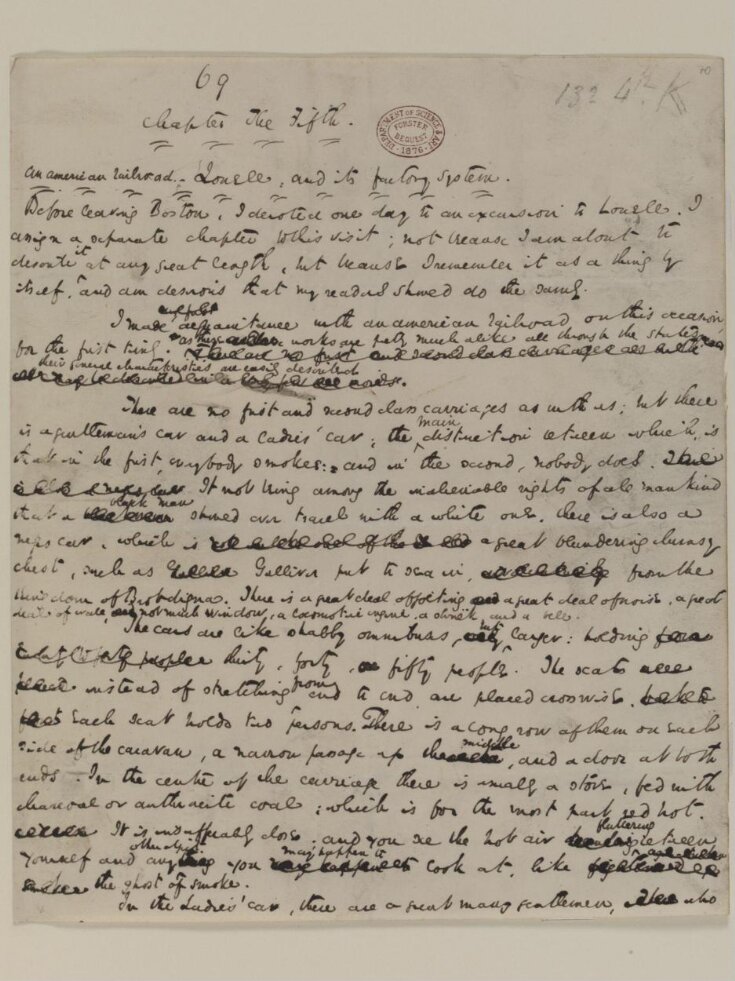 69
132 4th K
Chapter The Fifth.
DEPARTMENT OF SCIENCE & ART
FORSTER BEQUEST
1876
An american railroad. Lowell, and its factory system.
Before leaving Boston, I devoted one day to an excursion to Lowell. I
assign a separate chapter to this visit; not because I am about to
describe it at any great length, but because I remember it as a thing by
itself, and am desirous that my readers should do the same.
I made my first acquaintance with an american railroad, on this occasion,
for the first time. As these works are pretty much alike all through the states,
their general characteristics are easily described.
There are no first and second class carriages as with us; but there
is a gentlemen's car and a ladies' car; the main distinction between which is
that in the first, everybody smokes; and in the second, nobody does.
It not being among the inalienable rights of all mankind
that a black man should ever travel with a white one, there is also a
negro car, which is a great blundering clumsy
chest, such as Gulliver put to sea in, from the
kingdom of Brobdignag. There is a great deal of jolting, a great deal of noise, a great
deal of wall, not much window, a locomotive engine, a shriek, and a bell.
The cars are like shabby omnibuses, but larger: holding
thirty, forty, fifty people. The seats
instead of stretching from end to end, are placed crosswise.
Each seat holds two persons. There is a long row of them on each
side of the caravan, a narrow passage up the middle, and a door at both
ends. In the centre of the carriage there is usually a stove, fed with
charcoal or anthracite coal; which is for the most part red hot.
It is insufferably close; and you see the hot air fluttering between
yourself and any other object you may happen to look at, like
the ghost of smoke.
In the ladies' car, there are a great many gentlemen, who